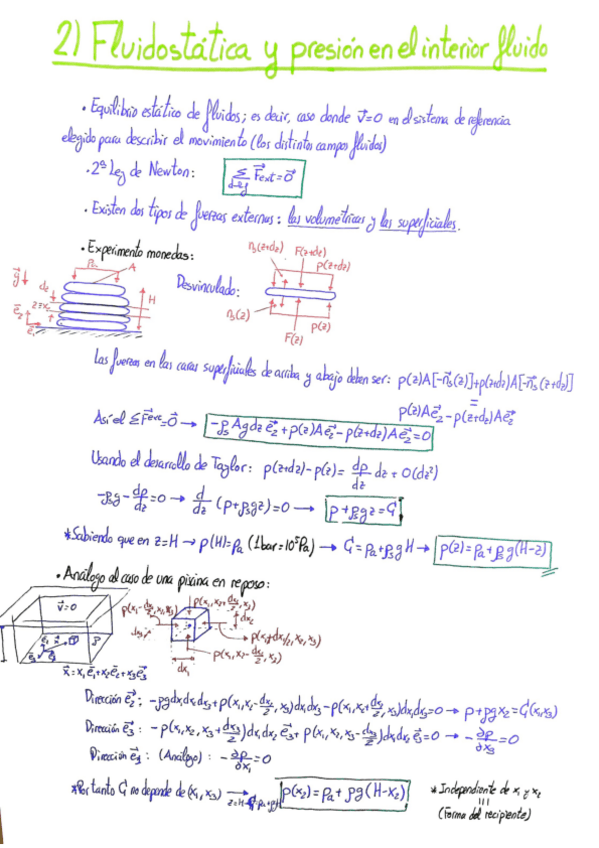 2) Fluidostática y presión en el interior fluido
• Equilibrio estático de fluidos; es decir, caso donde v⃗=0 en el sistema de referencia
elegido para describir el movimiento (los distintos campos fluidos)
• 2ª Ley de Newton: Σ F⃗ext = 0⃗
• Existen dos tipos de fuerzas externas: las volumétricas y las superficiales.
• Experimento monedas:
Pa A
g⃗ dz H
e⃗2 e⃗1
Desvinculado:
n⃗s(z+dz) F(z+dz) p(z+dz)
n⃗s(z) F(z) p(z)
Las fuerzas en las caras superficiales de arriba y abajo deben ser: p(z)A[-n⃗s(z)]+p(z+dz)A[-n⃗s(z+dz)]
=
p(z)Ae⃗2-p(z+dz)Ae⃗2
Así el ΣF⃗ext=0⃗ → -ρsAgdz e⃗2+p(z)Ae⃗2-p(z+dz)Ae⃗2=0
Usando el desarrollo de Taylor: p(z+dz)-p(z)= dp/dz dz + O(dz²)
-ρsg-dp/dz=0 → d/dz (p+ρsgz)=0 → p+ρsgz=C1
*Sabiendo que en z=H → p(H)=Pa (1bar=10⁵Pa) → C1=Pa+ρsgH → p(z)=Pa+ρsg(H-z)
• Análogo al caso de una piscina en reposo:
v⃗=0 ρ
p(x1,x2+dx2/2,x3)
p(x1-dx1/2,x2,x3)
dx2
dx3
p(x1+dx1/2,x2,x3)
p(x1,x2-dx2/2,x3)
dx1
x⃗=x1e⃗1+x2e⃗2+x3e⃗3
Dirección e⃗2: -ρgdx1dx2dx3+p(x1,x2-dx2/2,x3)dx1dx3-p(x1,x2+dx2/2,x3)dx1dx3=0 → p+ρgx2=C1(x1,x3)
Dirección e⃗3: -p(x1,x2,x3+dx3/2)dx1dx2 e⃗3+p(x1,x2,x3-dx3/2)dx1dx2 e⃗3=0 → -∂p/∂x3=0
Dirección e⃗1: (Análogo): -∂p/∂x1=0
*Por tanto C1 no depende de (x1,x3) → p(x2)=Pa+ρg(H-x2)
*Independiente de x1 y x2
(Forma del recipiente)